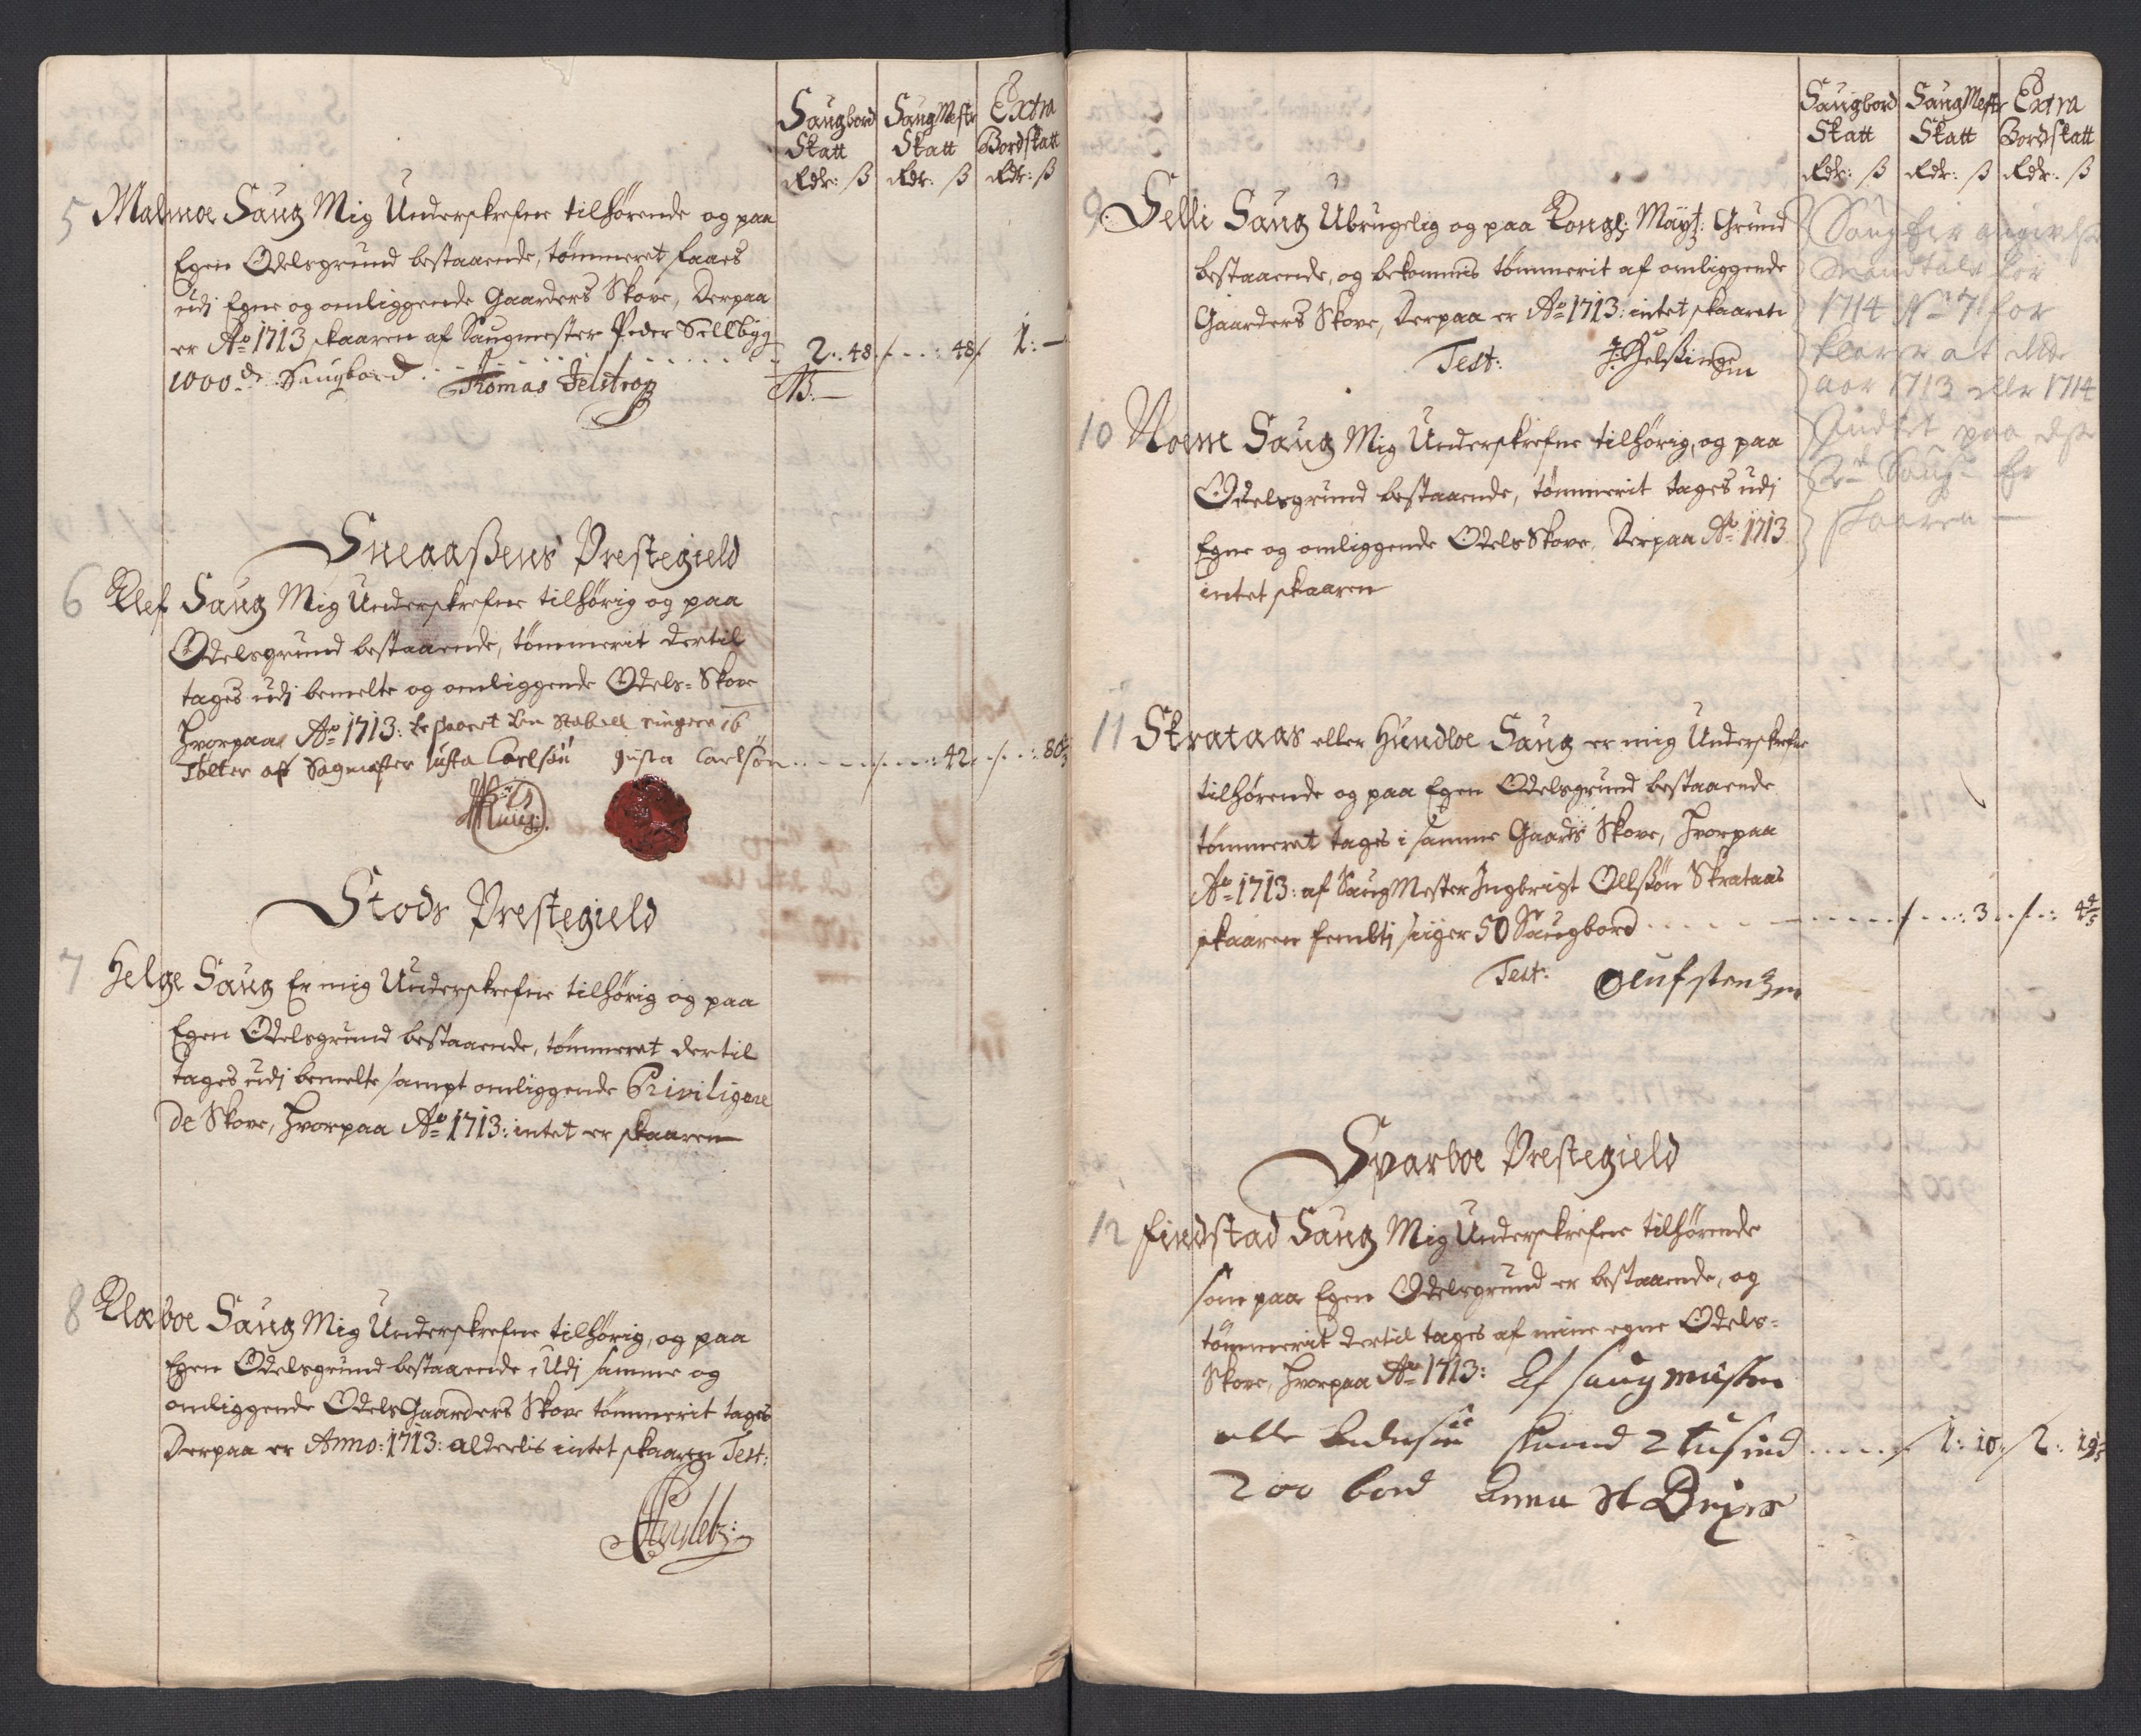 Saugbord SaugMestr Extra
Skatt Skatt Bordskatt
Rdr: ß Rdr: ß Rdr: ß
5 Malmoe Saug Mig Underskrefne tilhørende og paa
Egen Odelsgrund bestaaende, tømmeret faaes
udj Egne og omliggende Gaarders Skove, Derpaa
er Ao 1713 skaaren af Saugmester Peder Sellbyg
1000de Saugbord 2.. 48 48 1: —
Thomas Jelstrop
NB:—
Sneaaßens Prestegield
6 Klef Saug Mig Underskrefne tilhørig og paa
Odelsgrund bestaaende, tømmerit dertil
tages udj bemelte og omliggende Odels= Skove
Hvorpaa Ao 1713: 16
Tolter aff Sagmester Justa Carlsøn Justa Carlsøn 42 80
Stods Prestegield
7 Helge Saug Er mig Underskrefne tilhørig og paa
Egen Odelsgrund bestaaende, tømmeret dertil
tages udj bemelte sampt omliggende Privilig
de Skove, Hvorpaa Ao 1713: intet er skaaren
8 Klæboe Saug Mig Underskrefne tilhørig, og paa
Egen Odelsgrund bestaaende, Udj samme og
omliggende Odels Gaarders Skove tømmerit tages
Derpaa er Anno: 1713: alderlis intet skaaren Test:
Saugbord SaugMestr Extra
Skatt Skatt Bordskatt
Rdr: ß Rdr: ß Rdr: ß
9 Selli Saug Ubrugelig og paa Kongl: Mayt: Grund
bestaaende, og bekommis tømmerit af omliggende
Gaarders Skove, Derpaa er Ao 1713: intet skaaren
Test:
Saug
Mandtals for
1714 No 7 for
klarer at
aar 1713 eller 1714
paa
Saug Er
skaaren —
10 Noem Saug Mig Underskrefne tilhørig, og paa
Odelsgrund bestaaende, tømmerit tages udj
Egne og omliggende Odels Skove, Derpaa Ao 1713
intet skaaren
11 Strataas eller Hundloe Saug er mig Underskrefne
tilhørende og paa Egen Odelsgrund bestaaende
tømmeret tages i samme Gaards Skove, Hvorpaa
Ao 1713: af SaugMester Ingbrigt Ollßøn Skrataas
skaaren fembtj siiger 50 Saugbord 3 4 4/5
Test: Oluf stenzen
Sparboe Prestegield
12 Findstad Saug Mig Underskrefne tilhørende
som paa Egen Odelsgrund er bestaaende, og
tømmerit dertil tages af mine egne Odels=
Skove, Hvorpaa Ao 1713: Af saug
olle 2 tusind 1: 10 2: 19
200 bord Anna